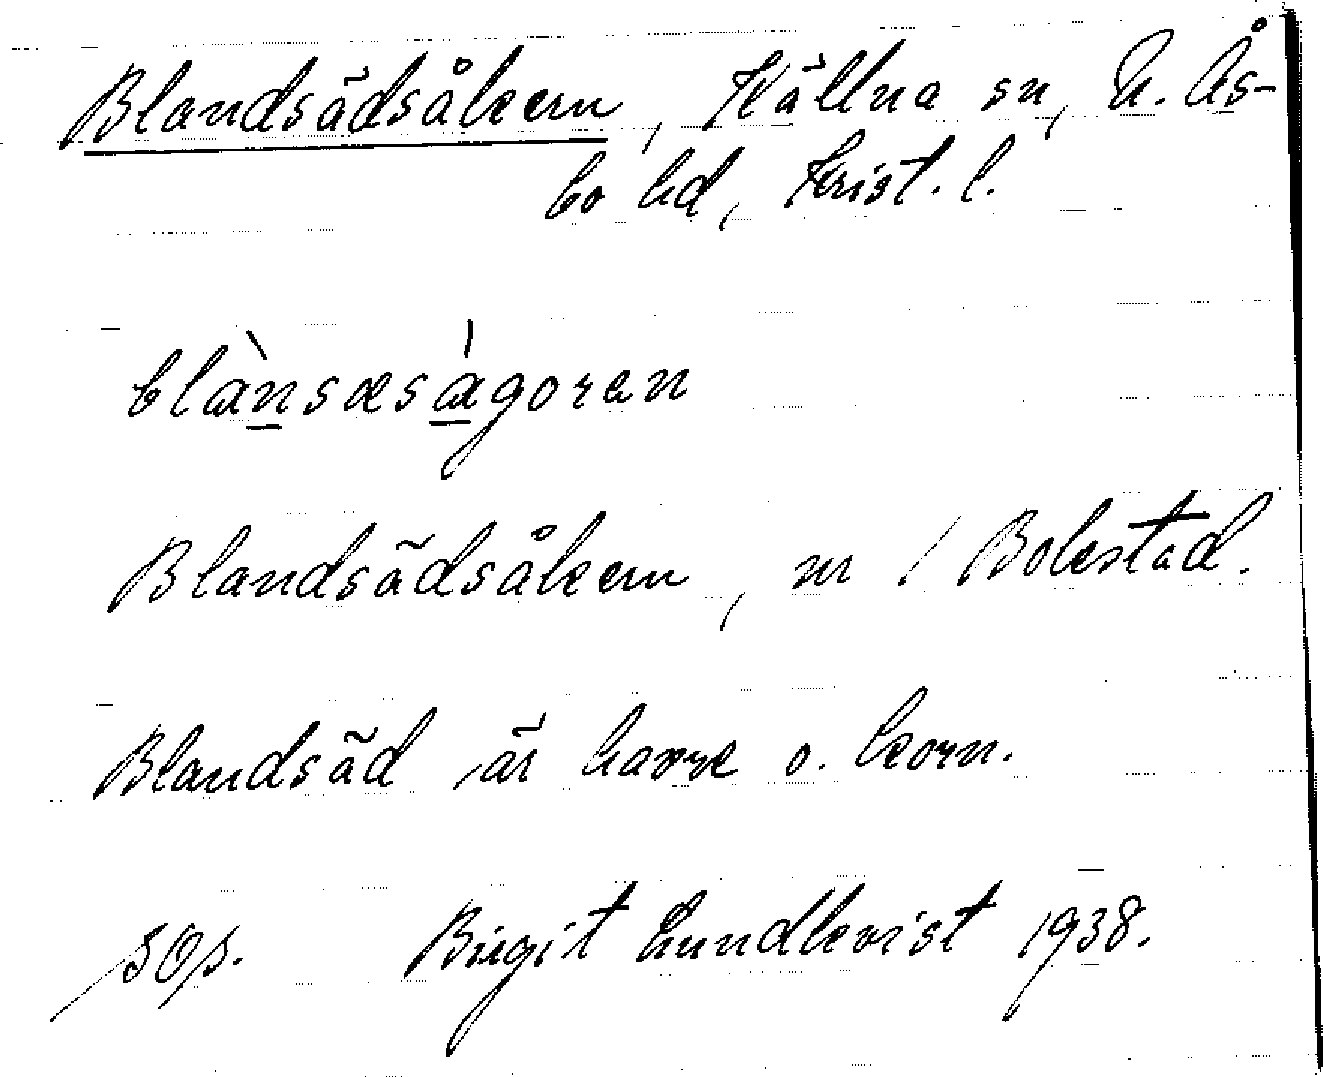 Blandsädsåkern, Källna sn, N. Ås-
bo hd, Krist. l.
blànsæsàgoren
Blandsädsåkern, nr 1 Bolestad.
Blandsäd är havre o. korn.
Birgit Lundkvist 1938.